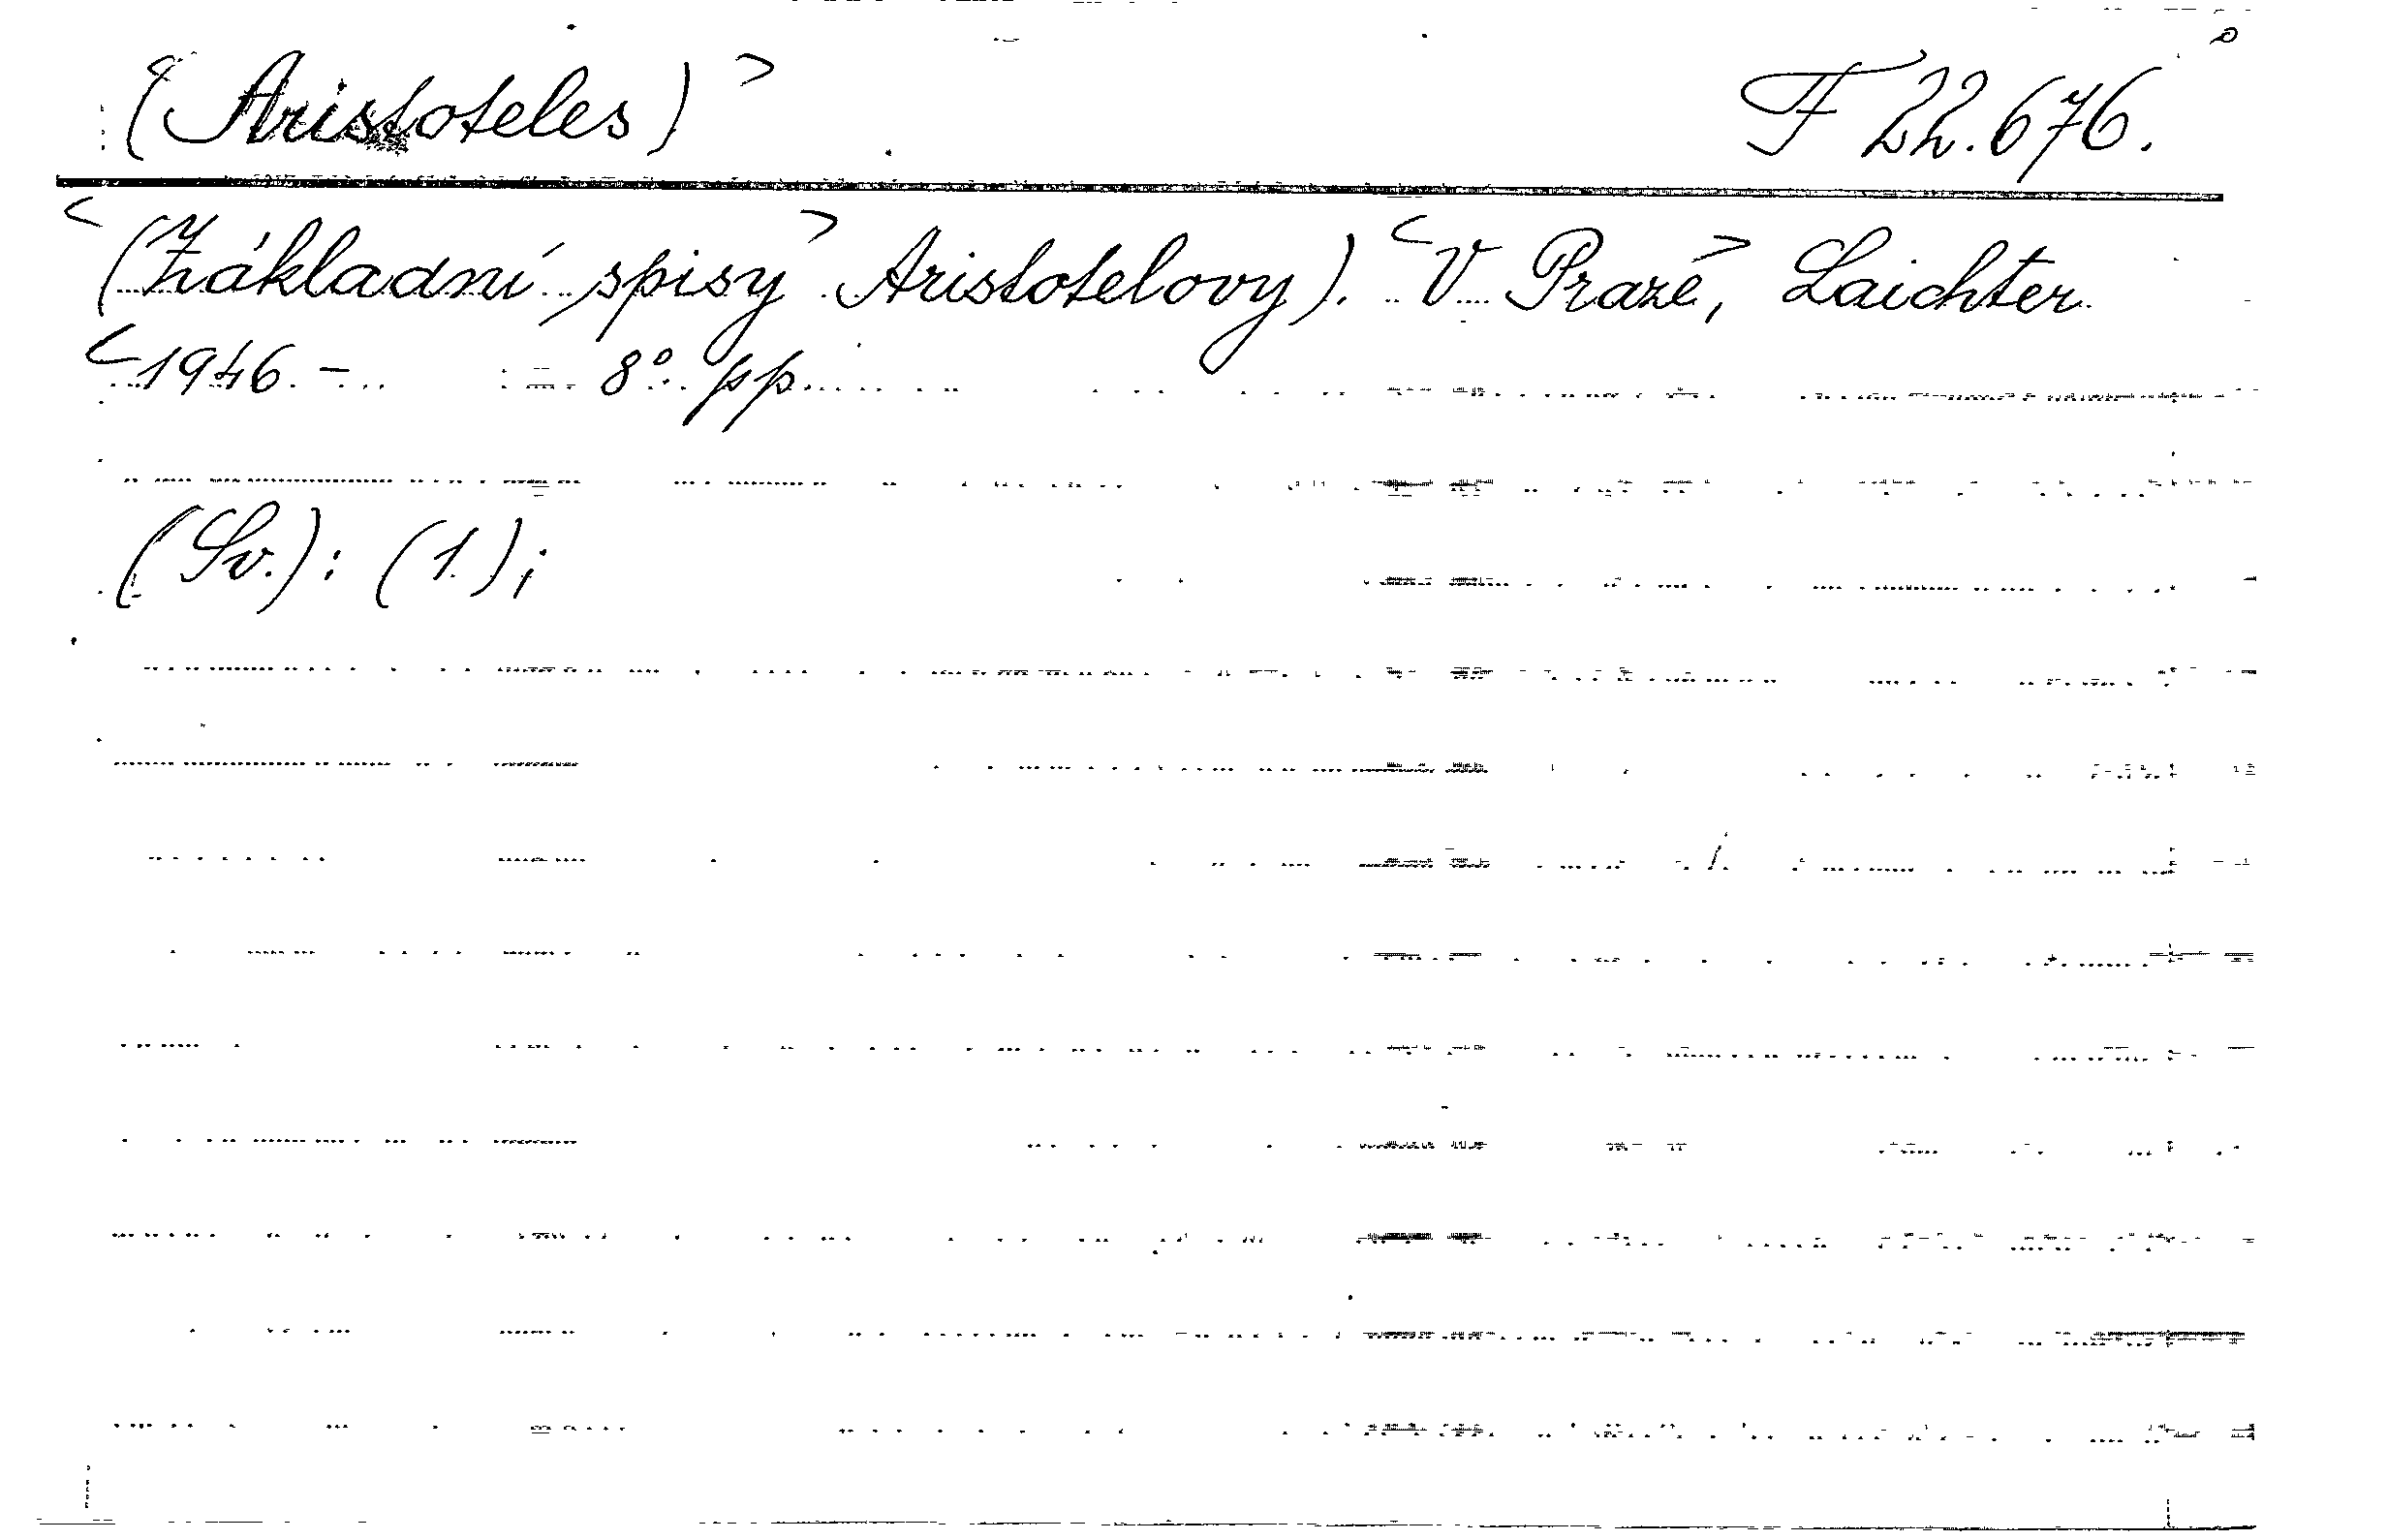 <(Aristoteles)> F 22.676.
<(Základní spisy> Aristotelovy). <V Praze>, Laichter
<1946.- 8° pp.
(Sv.): (1.);